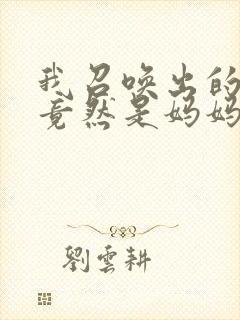 我召唤出的
竟然是妈妈
劉雲耕